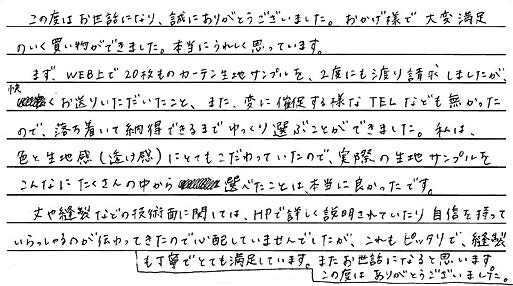 この度はお世話になり、誠にありがとうございました。おかげ様で大変満足
のいく買い物ができました。本当にうれしく思っています。
まず、WEB上で20枚ものカーテン生地サンプルを、2度にも渡り請求しましたが、
快くお送りいただいたこと、また、変に催促する様なTELなども無かった
ので、落ち着いて納得できるまでゆっくり選ぶことができました。私は、
色と生地感(透け感)にとてもこだわっていたので、実際の生地サンプルを
こんなにたくさんの中から選べたことは、本当に良かったです。
丈や縫製などの技術面に関しては、HPで詳しく説明されていたり自信を持って
いらっしゃるのが伝わってきたので心配していませんでしたが、これもピッタリで、縫製
も丁寧でとても満足しています。またお世話になると思います。
この度はありがとうございました。